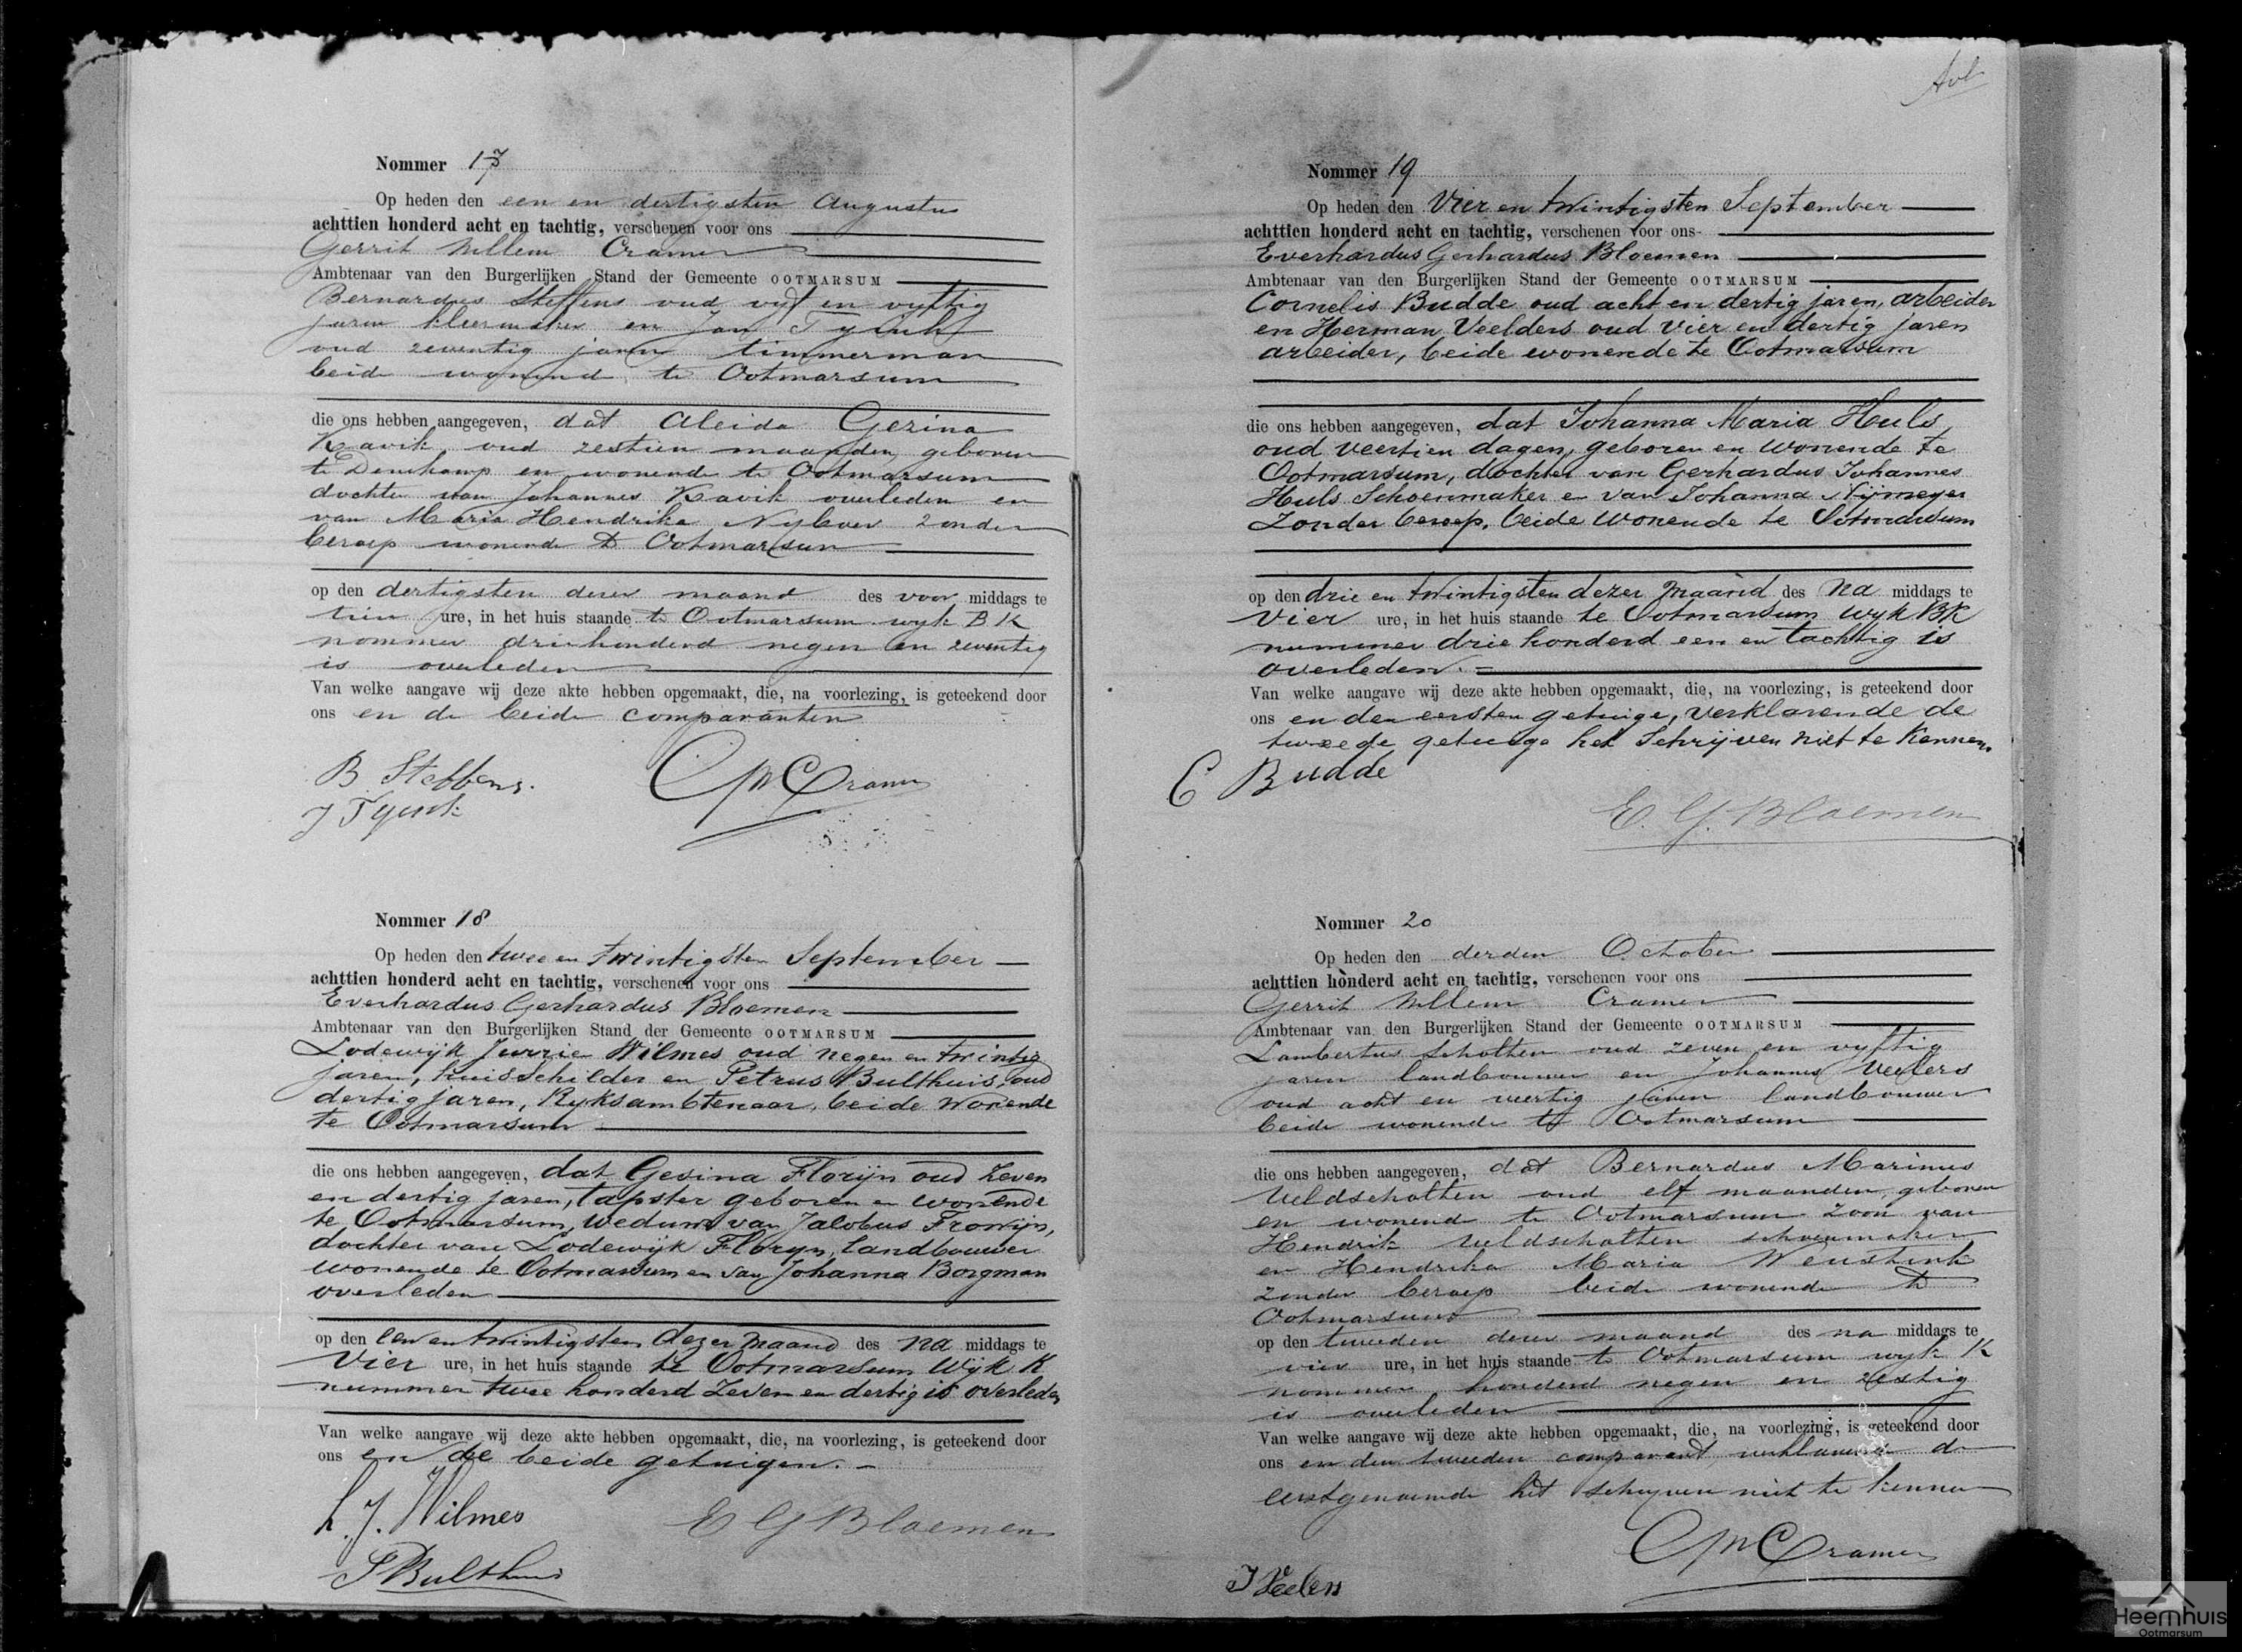 Nommer 17
Op heden den een en dertigsten Augustus
achttien honderd acht en tachtig, verschenen voor ons
Gerrit Willem Cramer
Ambtenaar van den Burgerlijken Stand der Gemeente OOTMARSUM
Bernardus Steffens oud vyf en vyftig
jaren kleermaker en Jan Tyink
oud zeventig jaren timmerman
beide wonend te Ootmarsum
die ons hebben aangegeven, dat Aleida Gezina
Kavik oud zestien maanden geboren
te Denekamp en wonende te Ootmarsum
dochter van Johannes Kavik overleden en
van Maria Hendrika Nyboer zonder
beroep wonende te Ootmarsum
op den dertigsten dezer maand des voor middags te
tien ure, in het huis staande te Ootmarsum wyk BK
nommer driehonderd negen en zeventig
is overleden
Van welke aangave wij deze akte hebben opgemaakt, die, na voorlezing, is geteekend door
ons en de beide comparanten
B. Steffens.
GWCramer
J Tyink
Nommer 18
Op heden den twee en twintigsten September
achttien honderd acht en tachtig, verschenen voor ons
Everhardus Gerhardus Bloemen
Ambtenaar van den Burgerlijken Stand der Gemeente OOTMARSUM
Lodewijk Jurrie Wilmes oud negen en twintig
jaren, huisschilder en Petrus Bulthuis, oud
dertig jaren, Ryksambtenaar, beide wonende
te Ootmarsum
die ons hebben aangegeven, dat Gesina Florijn oud zeven
en dertig jaren, tapster geboren en wonende
te Ootmarsum, weduwe van Jacobus Frowijn,
dochter van Lodewijk Floryn, landbouwer
wonende te Ootmarsum en van Johanna Borgman
overleden
op den een en twintigsten dezer maand des na middags te
Vier ure, in het huis staande te Ootmarsum Wijk K
nummer twee honderd zeven en dertig is overleden
Van welke aangave wij deze akte hebben opgemaakt, die, na voorlezing, is geteekend door
ons en de beide getuigen.
L. J. Wilmes
E G Bloemen
P Bulthuis
Nommer 19
Op heden den Vier en twintigsten September
achttien honderd acht en tachtig, verschenen voor ons
Everhardus Gerhardus Bloemen
Ambtenaar van den Burgerlijken Stand der Gemeente OOTMARSUM
Cornelis Budde oud acht en dertig jaren, arbeider
en Herman Veelders oud vier en dertig jaren
arbeider, beide wonende te Ootmarsum
die ons hebben aangegeven, dat Johanna Maria Huls
oud veertien dagen, geboren en wonende te
Ootmarsum, dochter van Gerhardus Johannes
Huls Schoenmaker en van Johanna Nijmeyer
Zonder beroep, beide wonende te Ootmarsum
op den drie en twintigsten dezer maand des Na middags te
Vier ure, in het huis staande te Ootmarsum wyk BK
nummer drie honderd een en tachtig is
overleden.
Van welke aangave wij deze akte hebben opgemaakt, die, na voorlezing, is geteekend door
ons en den eersten getuige, verklarende de
tweede getuige het Schrijven niet te kennen.
C Budde
E. G. Bloemen
Nommer 20
Op heden den derden October
achttien honderd acht en tachtig, verschenen voor ons
Gerrit Willem Cramer
Ambtenaar van den Burgerlijken Stand der Gemeente OOTMARSUM
Lambertus Scholten oud zeven en vyftig
jaren landbouwer en Johannes Veelers
oud acht en veertig jaren landbouwer
beide wonende te Ootmarsum
die ons hebben aangegeven, dat Bernardus Marinus
Veldscholten oud elf maanden, geboren
en wonend te Ootmarsum zoon van
Hendrik Veldscholten schoenmaker
en Hendrika Maria Weustink
zonder beroep beide wonende te
Ootmarsum
op den tweeden dezer maand des na middags te
vier ure, in het huis staande te Ootmarsum wyk K
nommer honderd negen en zestig
is overleden
Van welke aangave wij deze akte hebben opgemaakt, die, na voorlezing, is geteekend door
ons en den tweeden comparant, verklarende de
eerstgenoemde het schryven niet te kennen
GWCramer
J Veelers
Heernhuis
Ootmarsum